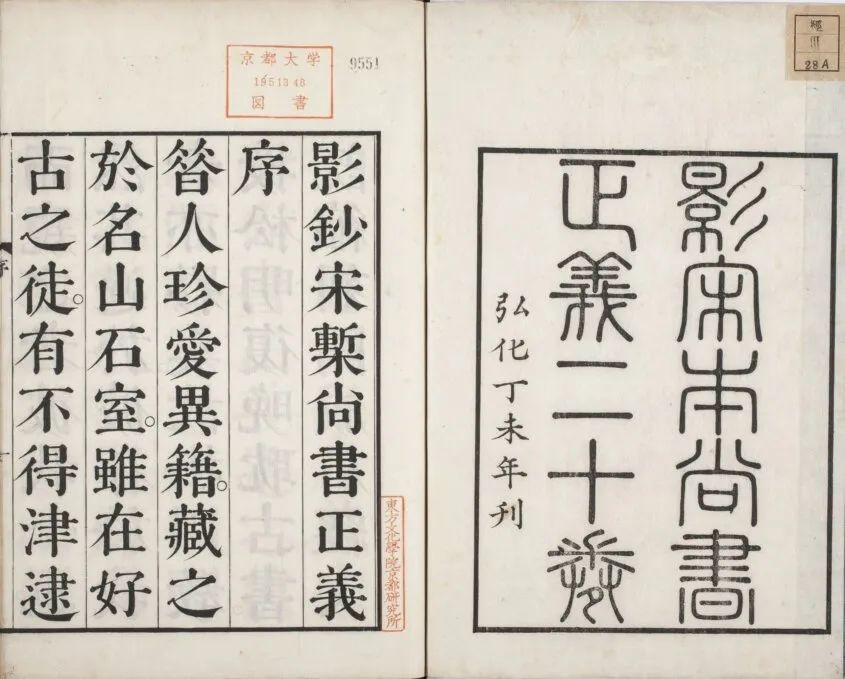 經
III
28A
影宋本尚書
正義二十卷
弘化丁未年刊
京都大学
1951348
図書
9551
影鈔宋槧尚書正義
序
㫺人珍愛異籍。藏之
於名山石室。雖在好
古之徒。有不得津逮
東方文化學院京都研究所
序